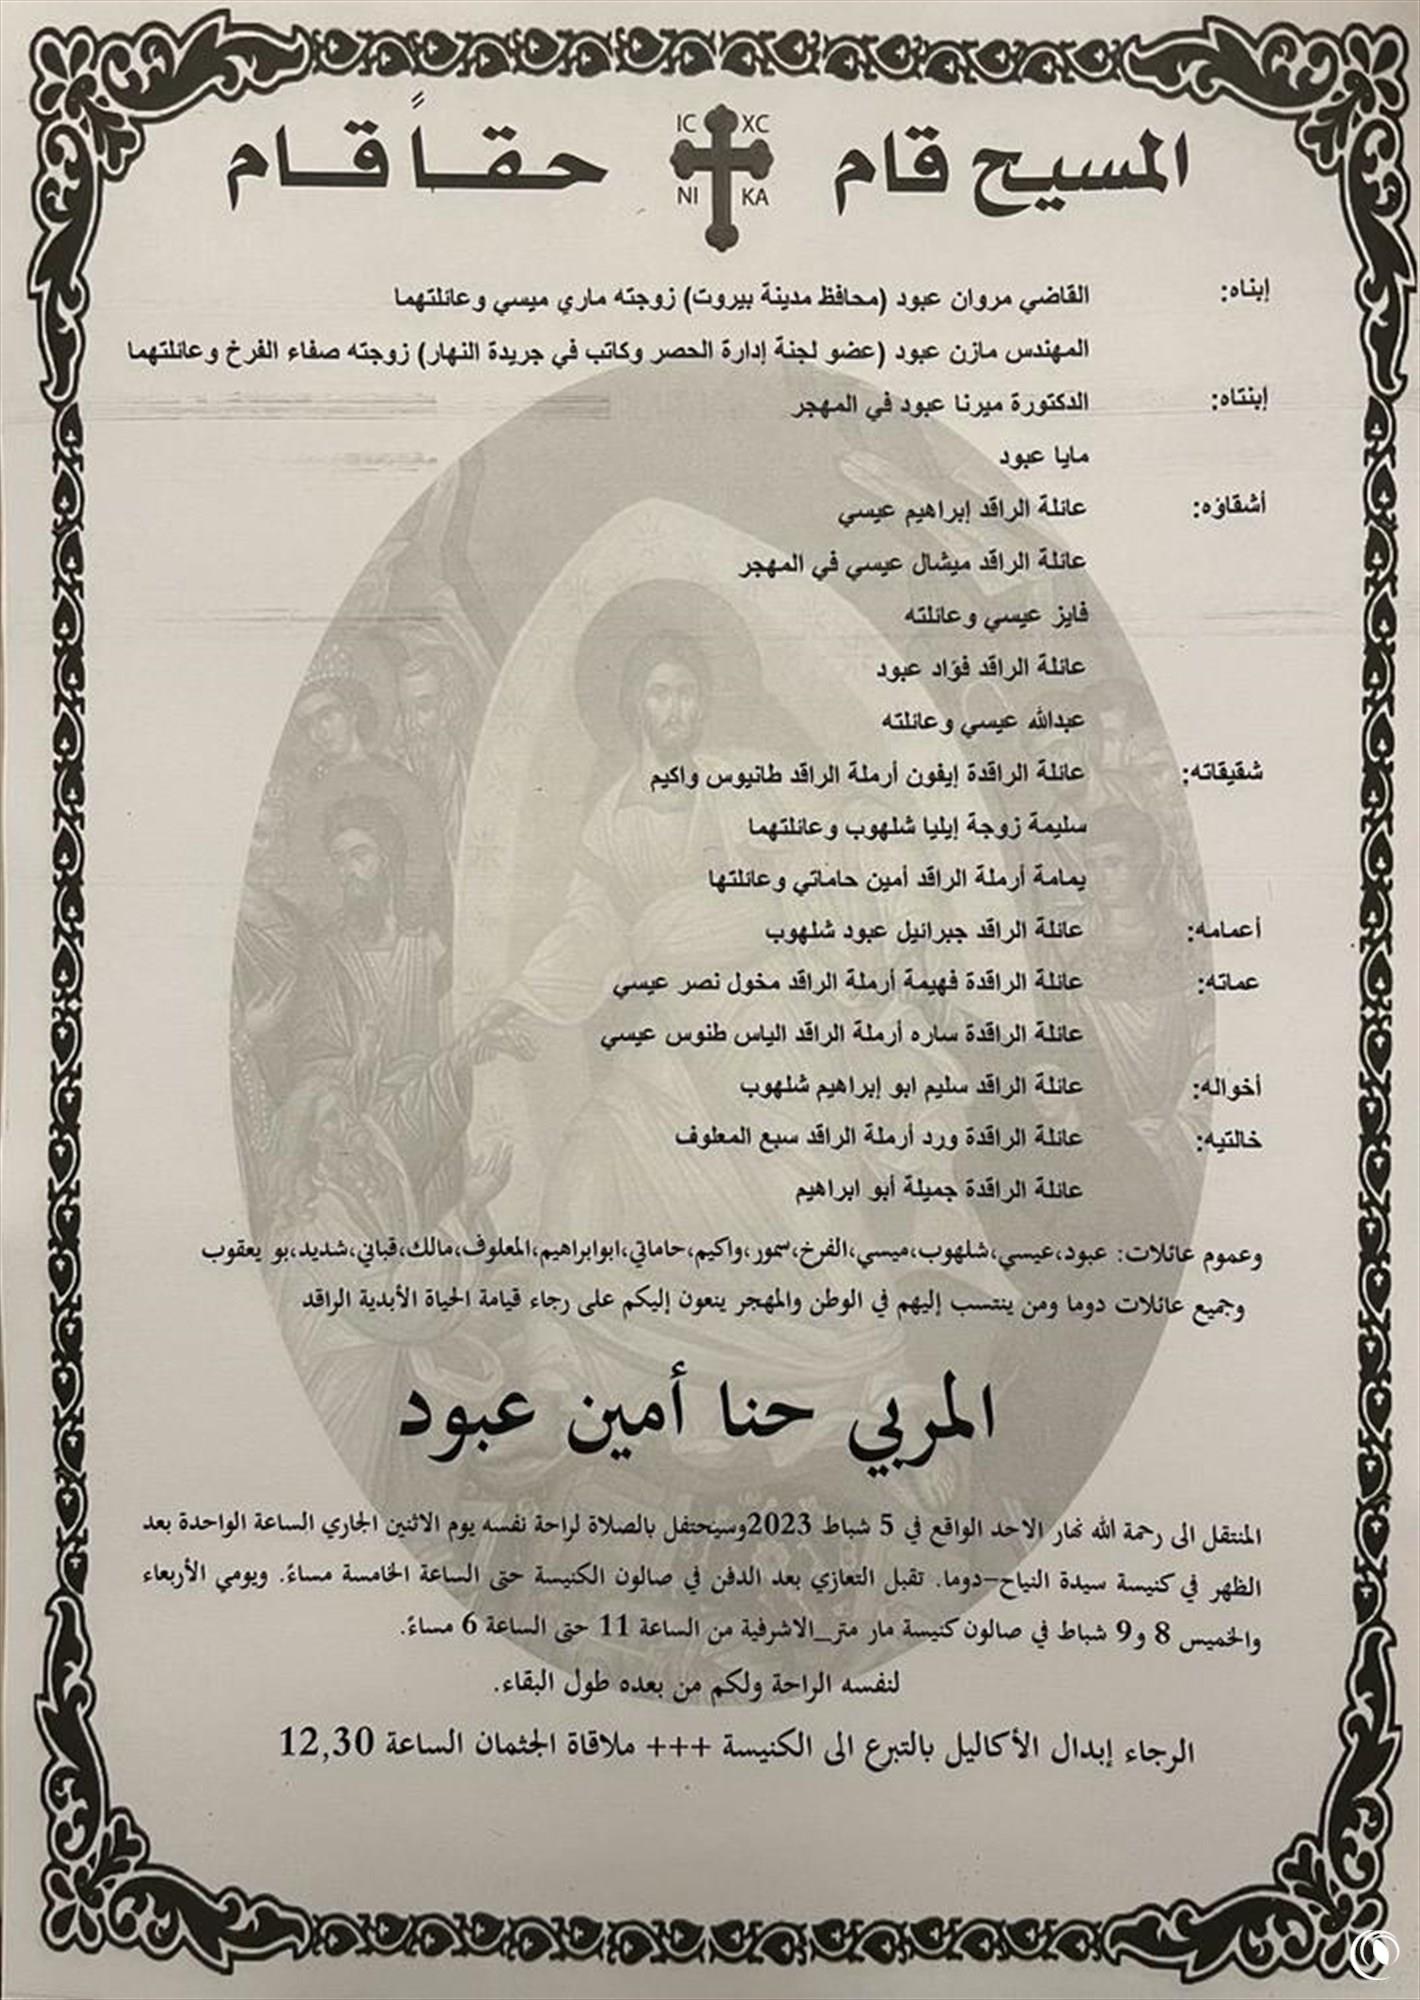 المسيح قام IC XC NI KA حقاً قام
إبناه: القاضي مروان عبود (محافظ مدينة بيروت) زوجته ماري ميسي وعائلتهما
المهندس مازن عبود (عضو لجنة إدارة الحصر وكاتب في جريدة النهار) زوجته صفاء الفرخ وعائلتهما
إبنتاه: الدكتورة ميرنا عبود في المهجر
مايا عبود
أشقاؤه: عائلة الراقد إبراهيم عيسي
عائلة الراقد ميشال عيسي في المهجر
فايز عيسي وعائلته
عائلة الراقد فؤاد عبود
عبدالله عيسي وعائلته
شقيقاته: عائلة الراقدة إيفون أرملة الراقد طانيوس واكيم
سليمة زوجة إيليا شلهوب وعائلتهما
يمامة أرملة الراقد أمين حاماتي وعائلتها
أعمامه: عائلة الراقد جبرائيل عبود شلهوب
عماته: عائلة الراقدة فهيمة أرملة الراقد مخول نصر عيسي
عائلة الراقدة ساره أرملة الراقد الياس طنوس عيسي
أخواله: عائلة الراقد سليم ابو إبراهيم شلهوب
خالتيه: عائلة الراقدة ورد أرملة الراقد سبع المعلوف
عائلة الراقدة جميلة أبو ابراهيم
وعموم عائلات: عبود،عيسي،شلهوب،ميسي،الفرخ،سمور،واكيم،حاماتي،ابوابراهيم،المعلوف،مالك،قباني،شديد،بو يعقوب
وجميع عائلات دوما ومن ينتسب إليهم في الوطن والمهجر ينعون إليكم على رجاء قيامة الحياة الأبدية الراقد
المربي حنا أمين عبود
المنتقل الى رحمة الله نهار الاحد الواقع في 5 شباط 2023وسيحتفل بالصلاة لراحة نفسه يوم الاثنين الجاري الساعة الواحدة بعد
الظهر في كنيسة سيدة النياح–دوما. تقبل التعازي بعد الدفن في صالون الكنيسة حتى الساعة الخامسة مساءً. ويومي الأربعاء
والخميس 8 و9 شباط في صالون كنيسة مار متر_الاشرفية من الساعة 11 حتى الساعة 6 مساءً.
لنفسه الراحة ولكم من بعده طول البقاء.
الرجاء إبدال الأكاليل بالتبرع الى الكنيسة +++ ملاقاة الجثمان الساعة 12,30